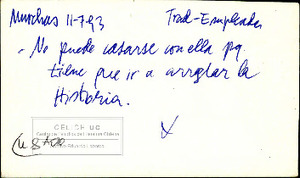 Muschas 11-793 Trad-Empleadas
- No puede casarse con ella pq
tiene que ir a arreglar la
Historia.
CELICH UC
(USADO
X